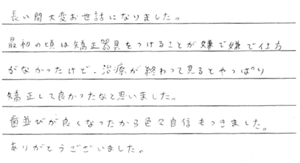 長い間大変お世話になりました。
最初の頃は矯正器具をつけることが嫌で嫌で仕方
がなかったけど、治療が終わって見るとやっぱり
矯正して良かったなと思いました。
歯並びが良くなったから色々自信もつきました。
ありがとうございました。